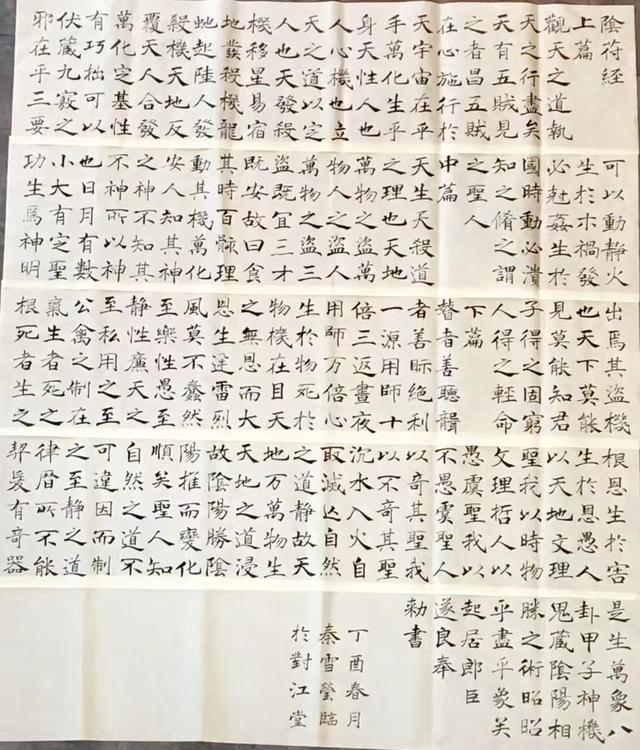 陰符經
上篇
觀天之道執
天之行盡矣
天有五賊見
之者昌五賊
在心施行於
天宇宙在乎
手萬化生乎
身天性人也
人心機也立
天之道以定
人也天發殺
機移星易宿
地發殺機龍
虵起陸人發
殺機天地反
覆天人合發
萬化定基性
有巧拙可以
伏藏九竅之
邪在乎三要
可以動静火
生於木禍發
必尅姦生於
國時動必潰
知之脩之謂
之聖人
中篇
天生天殺道
之理也天地
萬物之盜萬
物人之盜人
萬物之盜三
盜既宜三才
既安故曰食
其時百骸理
動其機萬化
安人知其神
之神不知其
不神所以神
也日月有數
小大有定聖
功生焉神明
出焉其盜機
也天下莫能
見莫能知君
子得之固窮
人得之輕命
下篇
瞽者善聽聾
者善眎絕利
一源用師十
倍三返晝夜
用師万倍心
生於物死於
物機在目天
之無恩而大
恩生迅雷烈
風莫不蠢然
至樂性愚至
静性廉天之
至私用之至
公禽之制在
氣生者死之
根死者生之
根恩生於害
生於恩愚人
以天地文理
聖我以時物
文理哲人以
愚虞聖我以
不愚虞聖人
以奇其聖我
以不奇其聖
沉水入火自
取滅亡自然
之道静故天
地万萬物生
天地之道浸
故陰陽勝陰
陽推而變化
順矣聖人知
自然之道不
可違因而制
之至静之道
律曆所不能
契爰有奇器
是生萬象八
卦甲子神機
鬼藏陰陽相
勝之術昭昭
乎盡乎象矣
起居郎臣
遂良奉
勑書
丁酉春月
秦雪瑩臨
於對江堂